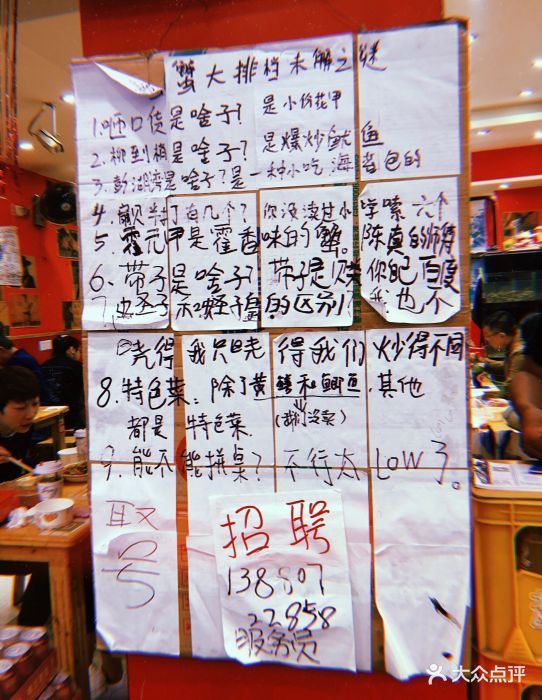 蟹大排档未解之谜
1.哑口债是啥子? 是小份花甲
2.梆到梢是啥子? 是爆炒鱿鱼
3.彭湖湾是啥子?是一种小吃海苔包的
4.半打有几个?你没读过小学嗦 六个
5.霍元甲是霍香味的蟹。陈真的师傅
6.带子是啥子?带子是贝类你自己百度
7.蛏子和蛏子皇的区别?我也不
晓得我只晓得我们炒得不同
8.特色菜:除了黄鳝和鲫鱼.其他
都是特色菜.
(我们没卖)
9.能不能拼桌?不行太LOW了。
取号
招聘
138807
22858
服务员
大众点评